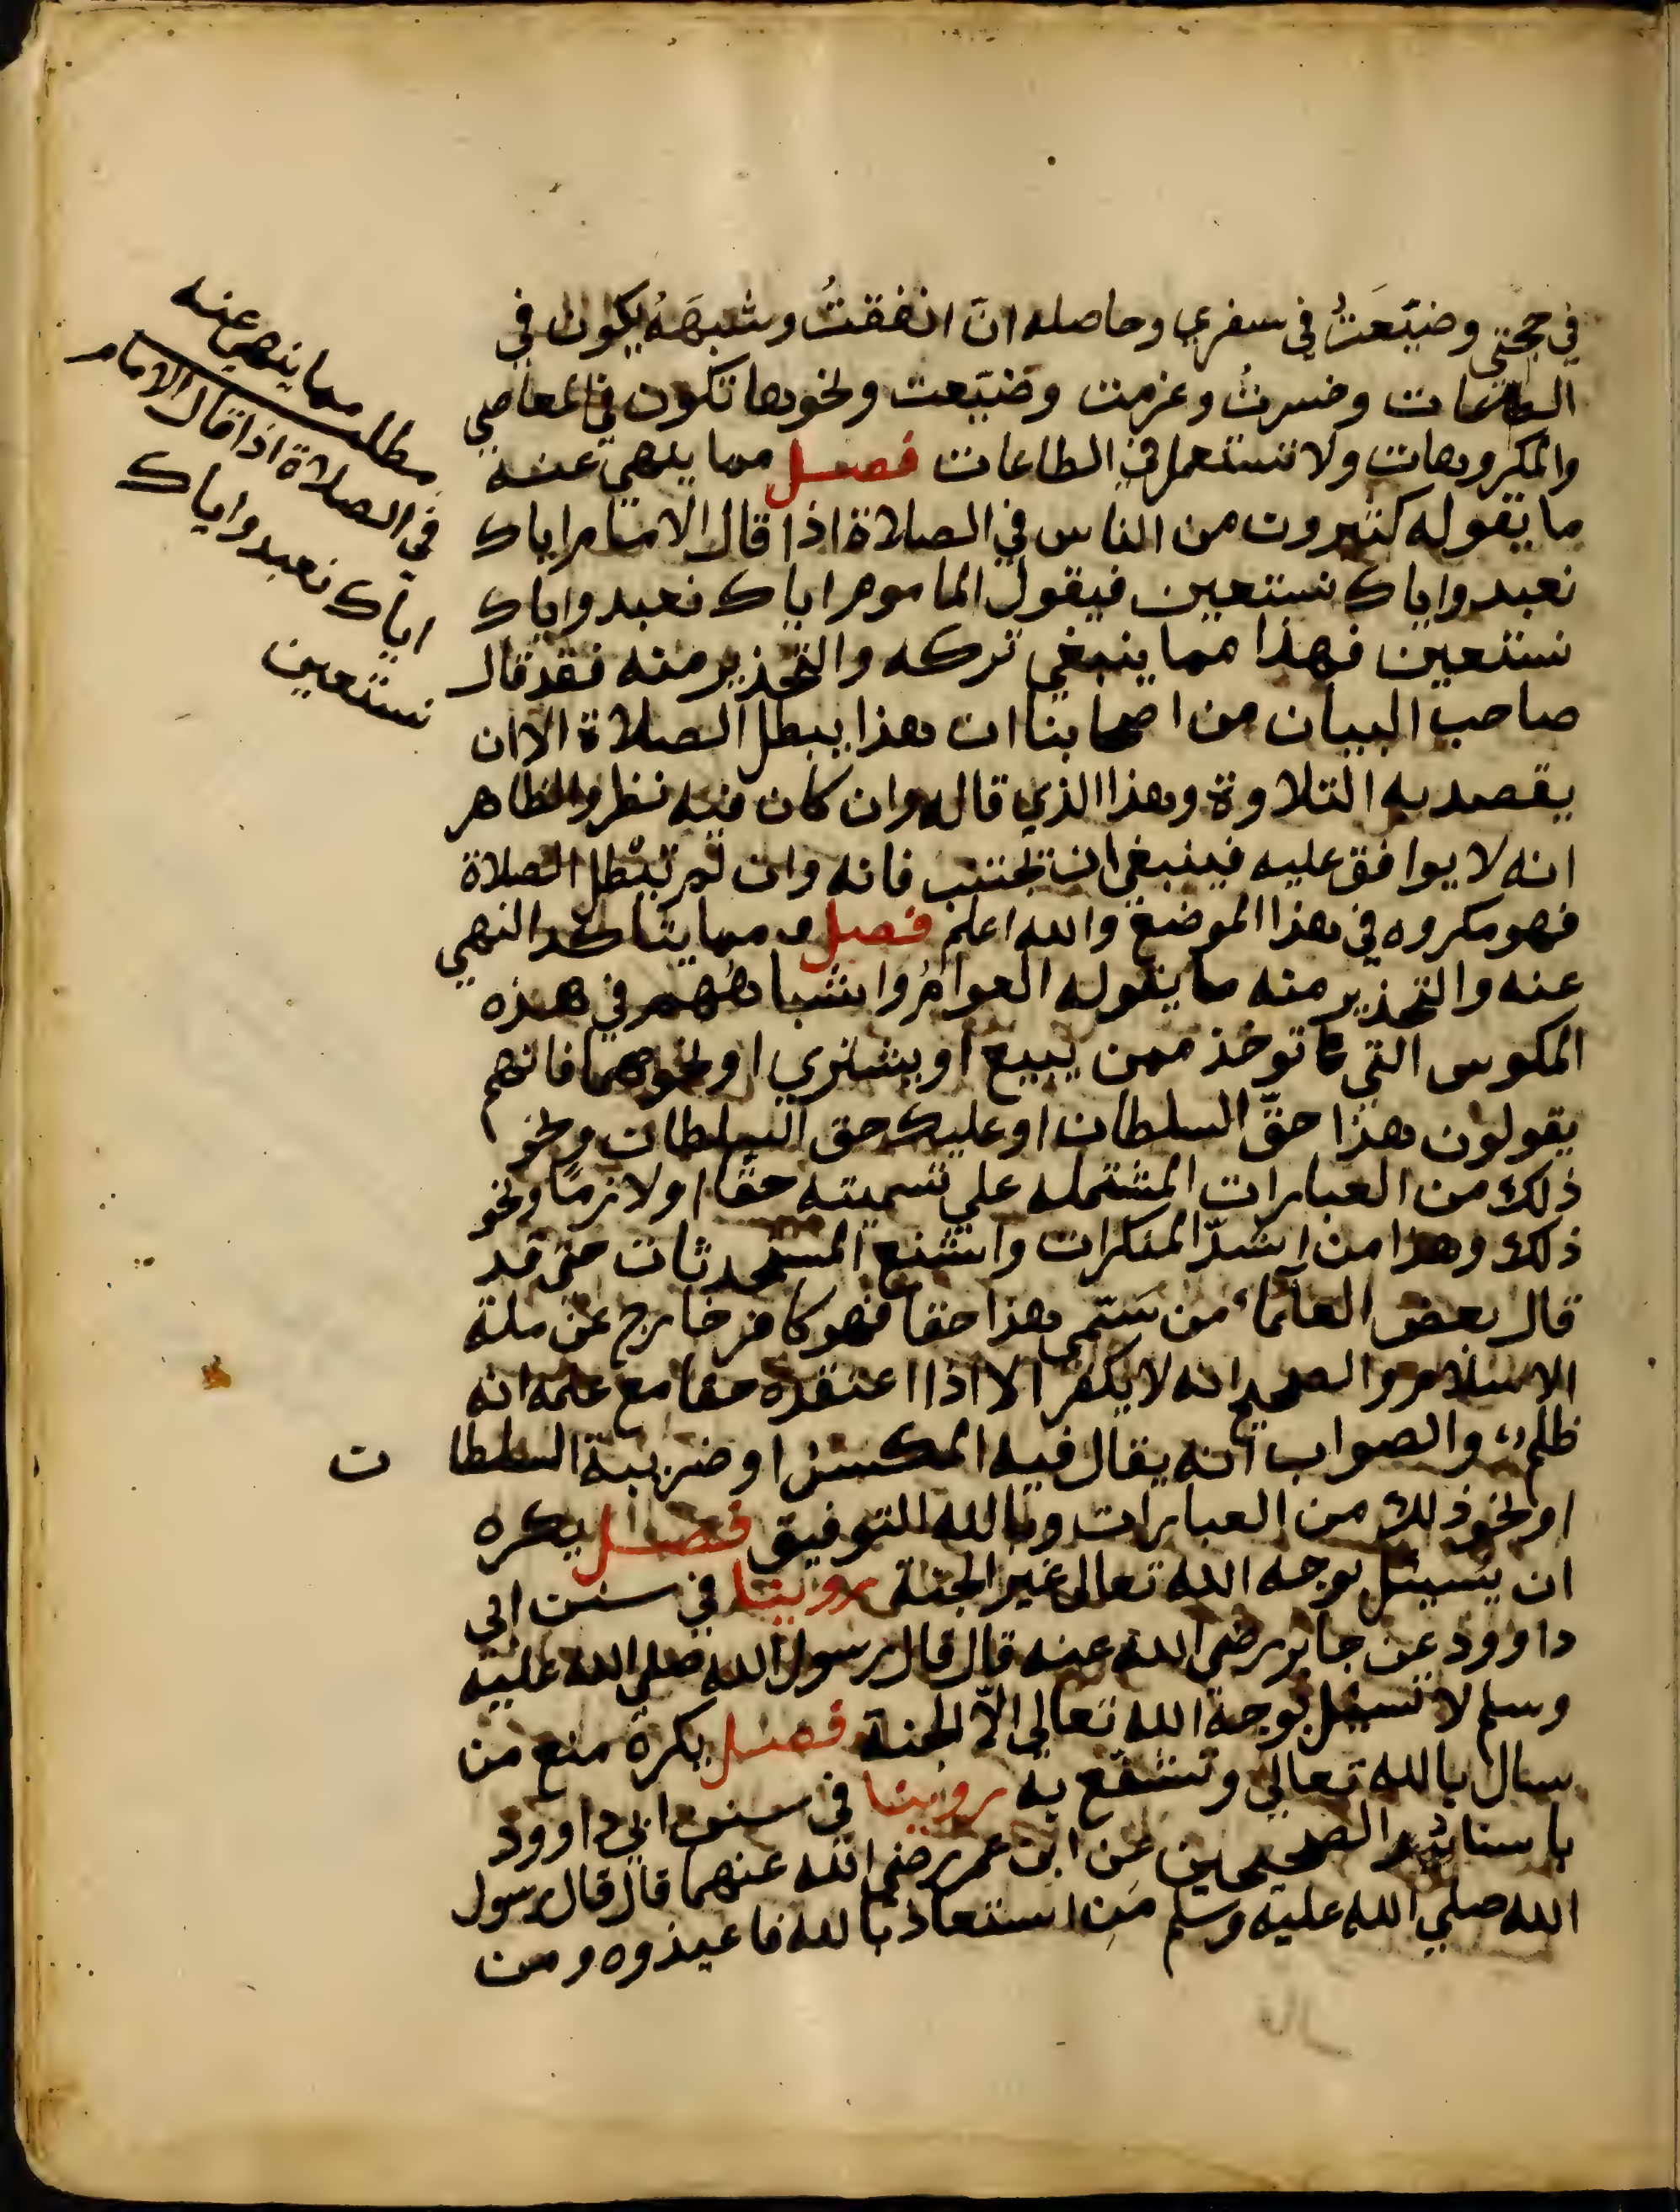 في حجتي وضيّعتُ في سفري وحاصله انّ انفقتُ وشبهَهُ يكون في
الطاعات وخسرتُ وغرمت وضيّعت ونحوها تكون في المعاصي
والمكروهات ولا تستعمل في الطاعات فصل مما ينهى عنه
ما يقوله كثيرون من الناس في الصلاة اذا قال الامام اياك
نعبد واياك نستعين فيقول الماموم اياك نعبد واياك
نستعين فهذا مما ينبغي تركه والتحذير منه فقد قال
صاحب البيان من اصحابنا ان هذا يبطل الصلاة الا ان
يقصد به التلاوة وهذا الذي قاله وان كان فيه نظر والظاهر
انه لا يوافق عليه فينبغي ان تجتنب فانه وان لم تبطل الصلاة
فهو مكروه في هذا الموضع والله اعلم فصل ومما يتاكد النهي
عنه والتحذير منه ما يقوله العوامُ واشباههُم في هذه
المكوس التي توخذ ممن يبيع او يشتري او نحوهما فانهم
يقولون هذا حقّ السلطان او عليك حق السلطان ونحو
ذلك من العبارات المشتمله علي تسميته حقا او لازمًا ونحو
ذلك وهذا من اشدّ المنكرات واشنع المستحدثات حتى قد
قال بعض العلماء من سَمّى هذا حقا فهو كافر خارج عن ملة
الاسلام والصحيح انه لا يكفر الا اذا اعتقده حقا مع علمه انه
ظلم والصواب انه يقال فيه المكس او ضريبة السلطان
او نحو ذلك من العبارات وبالله التوفيق فصل يكره
ان يسئل بوجه الله تعالى غير الجنة روينا في سنن ابي
داوود عن جابر رضي الله عنه قال قال رسول الله صلي الله عليه
وسلم لا تسئل بوجه الله تعالى الّا الجنة فصل يكره منع من
سال بالله تعالي وتشفّع به روينا في سنن ابي داوود
باسناد الصحيحين عن ابن عمر رضي الله عنهما قال قال رسول
الله صلي الله عليه وسلم مَن استعاذ بالله فاعيذوه ومن
سال
مطلب مما ينهى عنه
في الصلاة اذا قال الامام
اياك نعبد واياك
نستعين